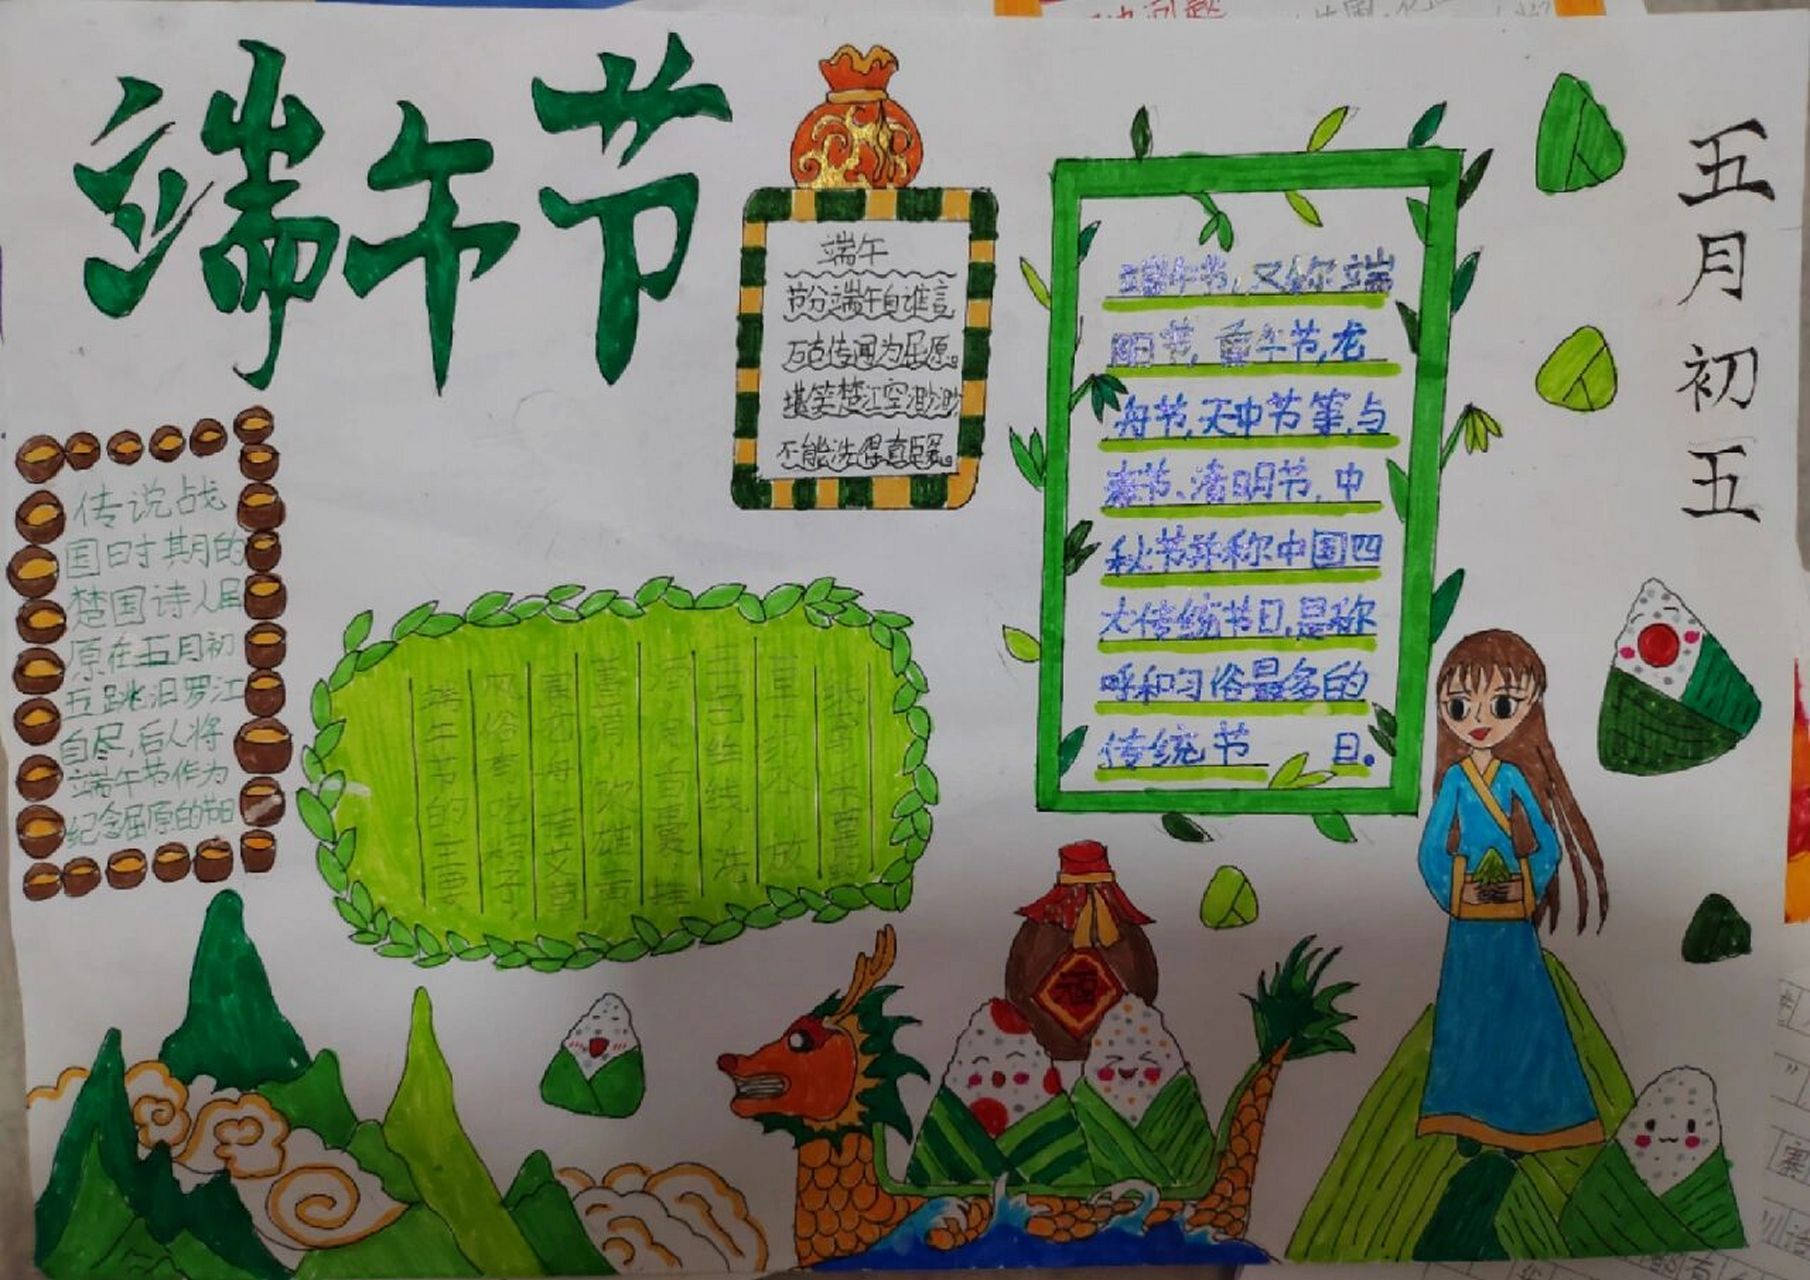 端午节
端午
节分端午自谁言
万古传闻为屈原。
堪笑楚江空渺渺
不能洗得直臣冤。
端午节,又称端
阳节,重午节,龙
舟节,天中节等,与
春节、清明节,中
秋节并称中国四
大传统节日,是称
呼和习俗最多的
传统节 日。
五月初五
传说战
国时期的
楚国诗人屈
原在五月初
五跳汨罗江
自尽,后人将
端午节作为
纪念屈原的节日
端午节的主要
风俗有吃粽子
赛龙舟 挂艾草
菖蒲 饮雄黄
福